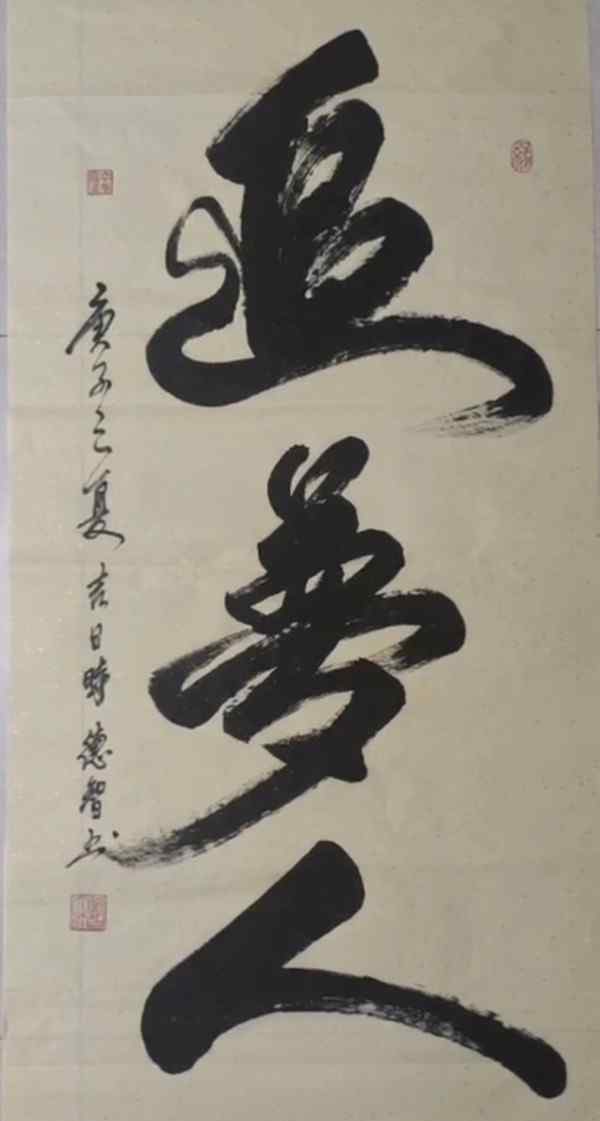 追夢人
庚子之夏吉日時德智书